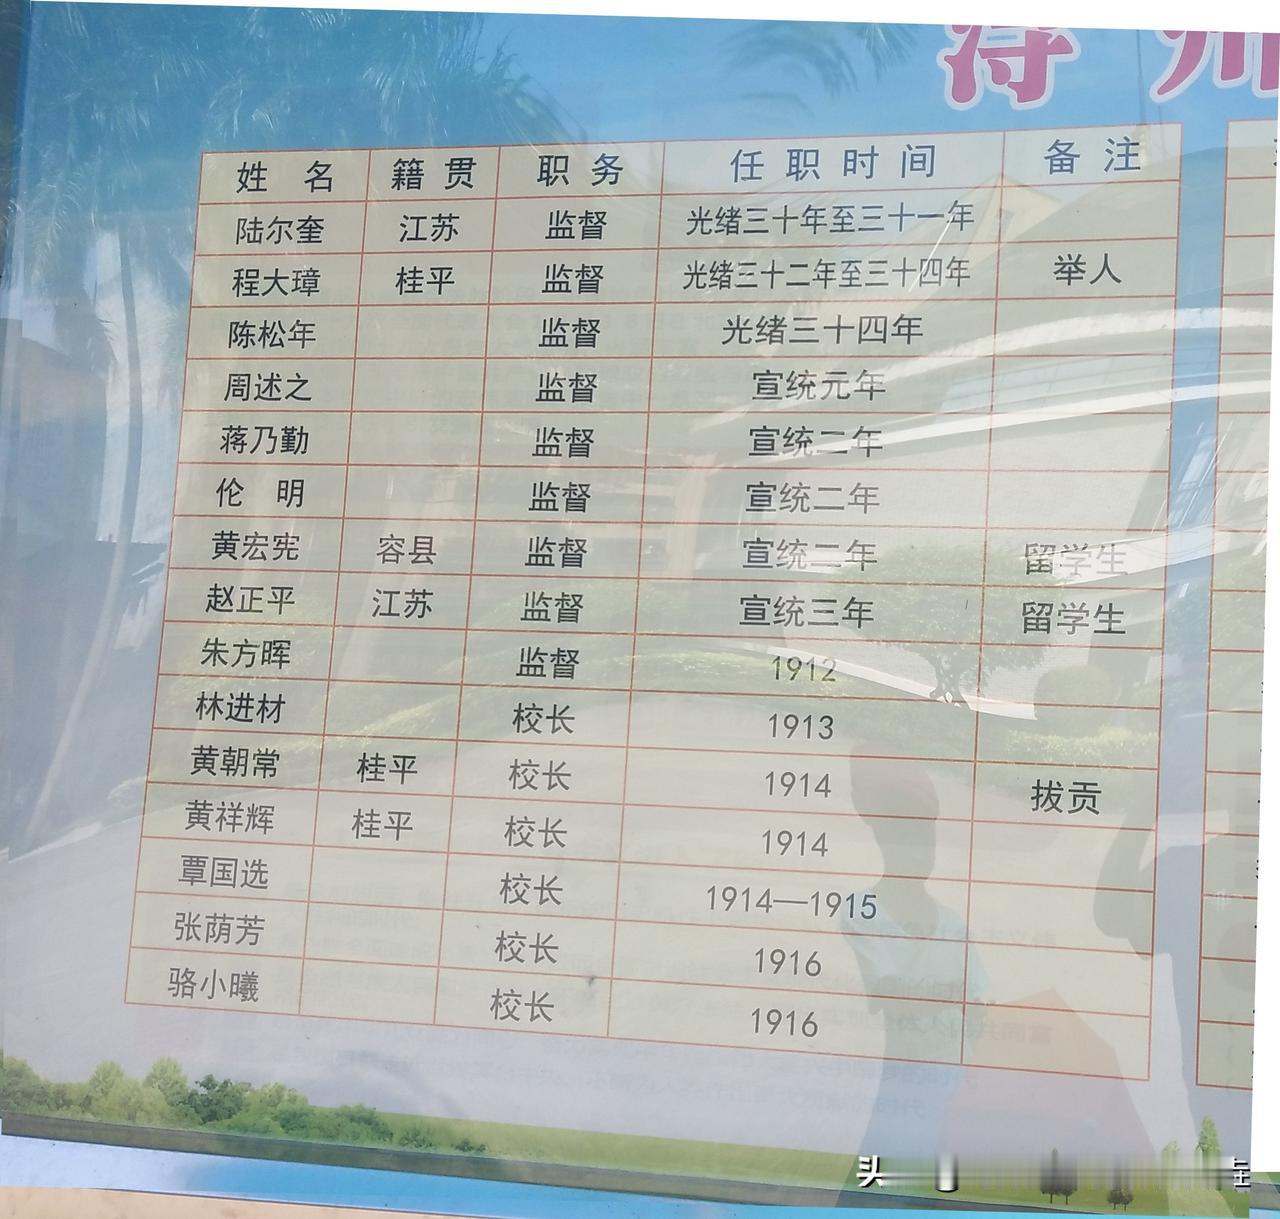 浔州
姓 名 籍贯 职务 任职时间 备注
陆尔奎 江苏 监督 光绪三十年至三十一年
程大璋 桂平 监督 光绪三十二年至三十四年 举人
陈松年 监督 光绪三十四年
周述之 监督 宣统元年
蒋乃勤 监督 宣统二年
伦 明 监督 宣统二年
黄宏宪 容县 监督 宣统二年 留学生
赵正平 江苏 监督 宣统三年 留学生
朱方晖 监督 1912
林进材 校长 1913
黄朝常 桂平 校长 1914 拔贡
黄祥辉 桂平 校长 1914
覃国选 校长 1914—1915
张荫芳 校长 1916
骆小曦 校长 1916
头